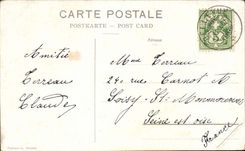 CARTE POSTALE
POSTKARTE — POST CARD
Amitié
Terreau
Claude
Mme Terreau
24 rue Carnot
Soisy-St-Montmorency
Seine et oise
France
5